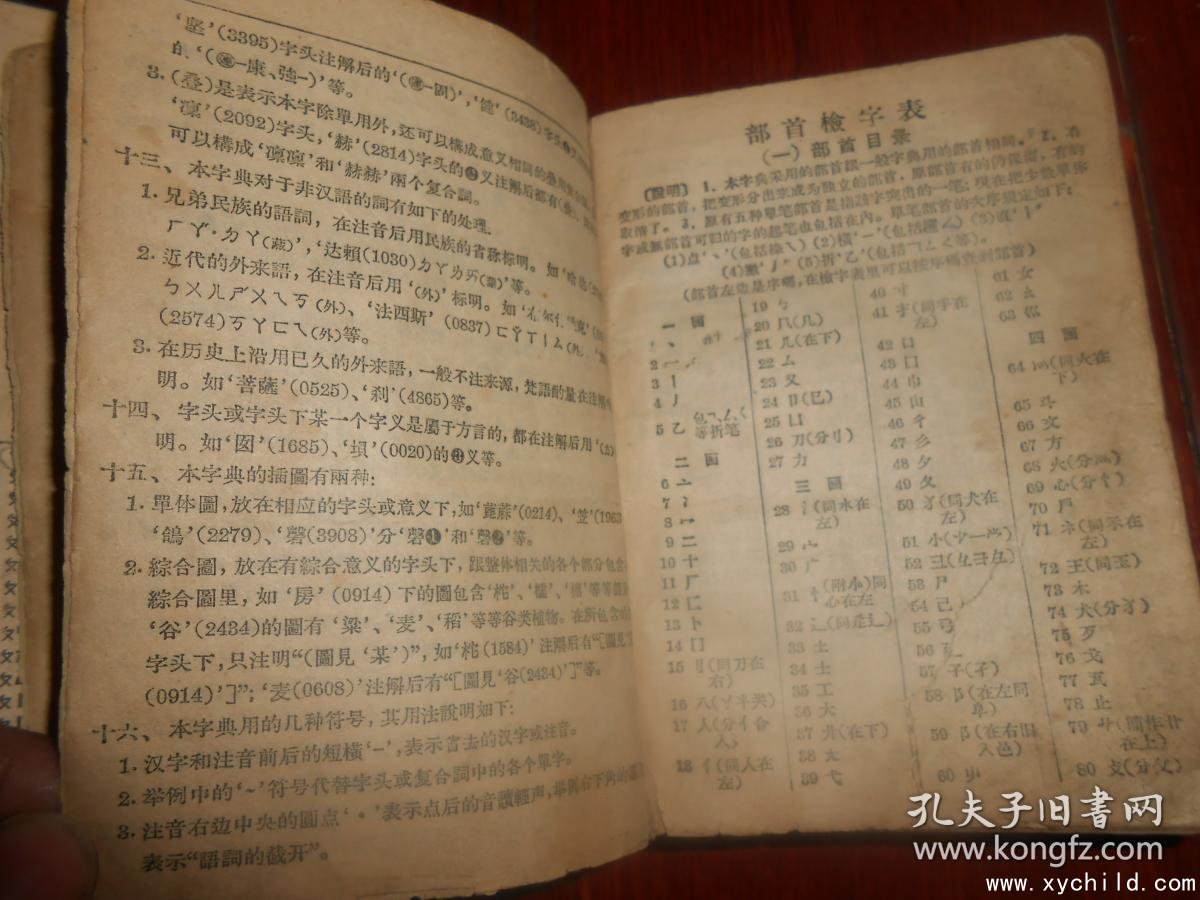 ‘坚’(3395)字头注解后的‘(一固)’,‘健’(3438)字头
的‘(一康、強一)’等。
3. (叠)是表示本字除單用外，还可以構成意义相同的叠用复合
‘凛’(2092)字头，‘赫’(2814)字头的义注解后都有(叠)
可以構成‘凛凛’和‘赫赫’兩个复合詞。
十三、本字典对于非汉語的詞有如下的处理.
1. 兄弟民族的語詞，在注音后用民族的省称标明。如‘哈
ㄏㄚˇ·ㄉㄚ(藏)’，‘达賴(1030)ㄉㄚㄌㄞ(蒙)’等。
2. 近代的外来語，在注音后用‘(外)’标明。如
ㄅㄨㄦㄕㄨㄟㄎ(外)、‘法西斯’(0837)ㄈㄚㄒㄧㄙ(外)、
(2574)ㄎㄚㄈㄟ(外)等。
3. 在历史上沿用已久的外来語，一般不注来源，梵語酌量在注解
明。如‘菩薩’(0525)、‘刹’(4865)等。
十四、字头或字头下某一个字义是屬于方言的，都在注解后用‘(方)
明。如‘囡’(1685)、‘垻’(0020)的义等。
十五、本字典的插圖有兩种:
1. 單体圖，放在相应的字头或意义下，如‘蓖蔴’(0214)、‘笠’(1963
‘鴿’(2279)、‘磬(3908)’分‘磬❶’和‘磬❷’等。
2. 綜合圖，放在有綜合意义的字头下，跟整体相关的各个部分包含
綜合圖里，如‘房’(0914)下的圖包含‘柁’、‘檩’、等等
‘谷’(2434)的圖有‘粱’、‘麦’、‘稻’等等谷类植物。在所包含
字头下，只注明“(圖見‘某’)”，如‘柁(1584)’注解后有“[圖見‘房
(0914)’]”; ‘麦(0608)’注解后有“[圖見‘谷(2434)’]”等。
十六、本字典用的几种符号，其用法說明如下:
1. 汉字和注音前后的短橫‘-’，表示省去的汉字或注音。
2. 举例中的‘~’符号代替字头或复合詞中的各个單字。
3. 注音右边中央的圓点‘·’表示点后的音讀輕声，举例右下角的
表示“語詞的截开”。
部首檢字表
(一)部首目录
〔說明〕 1. 本字典采用的部首跟一般字典用的部首相同。2. 有
变形的部首，把变形分出来成为独立的部首，原部首有的仍保留，有的
取消了。3. 原有五种單笔部首是指該字突出的一笔; 現在把少数單体
字或無部首可归的字的起笔也包括在內。單笔部首的次序規定如下:
(1)点‘丶’(包括捺㇏) (2)橫‘一’(包括提) (3)直‘丨’
(4)撇‘丿’(5)折‘乙’(包括等)。
(部首左边是序碼，在檢字表里可以按序碼查到部首)
一画
1 丶
2 一
3 丨
4 丿
5 乙
等折笔
二画
6 亠
7 冫
8 冖
9 二
10 十
11 厂
12 匚
13 卜
14 冂
15 刂(同刀在
右)
16 八(丷半类)
17 人(分亻合
入)
18 亻(同人在
左)
19 勹
20 八(几)
21 儿(在下)
22 厶
23 又
24 卩(㔾)
25 凵
26 刀(分刂)
27 力
三画
28 氵(同水在
左)
29 宀
30 广
31 忄(附㣺)同
心在左
32 辶(同辵)
33 土
34 士
35 工
36 大
37 廾(在下)
38 尢
39 弋
40 寸
41 扌(同手在
左)
42 口
43 囗
44 巾
45 山
46 彳
47 彡
48 夕
49 夂
50 犭(同犬在
左)
51 小
52 彐
53 尸
54 己
55 弓
56 廴
57 子(孑)
58 阝(在左同
阜)
59 阝(在右旧
入邑)
60 屮
61 女
62 幺
63 巛
四画
64 灬(同火在
下)
65 斗
66 文
67 方
68 火(分灬)
69 心(分忄)
70 户
71 礻(同示在
左)
72 王(同玉)
73 木
74 犬(分犭)
75 歹
76 戈
77 瓦
78 止
79 艹(簡作艹
在上)
80 支(分攵)
孔夫子旧书网
www.kongfz.com
www.xychild.com